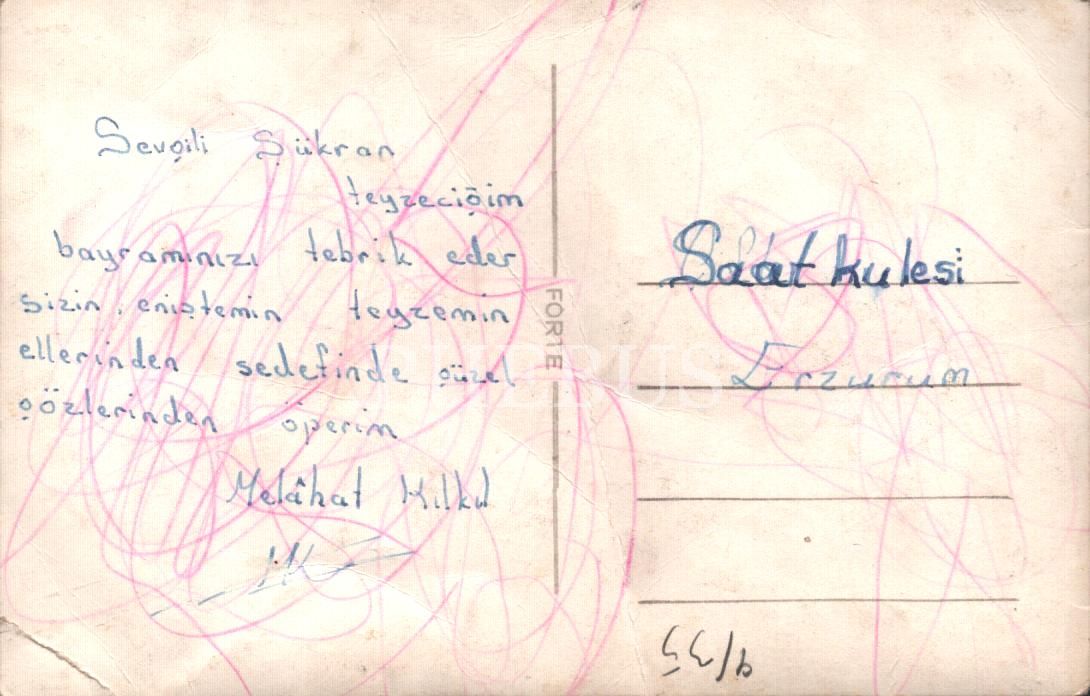 Sevgili Şükran
teyzeciğim
bayramınızı tebrik eder
sizin, eniştemin teyzemin
ellerinden sedefinde güzel
gözlerinden öperim
Melâhat Kılkıl
MK
FORTE
Saat kulesi
Erzurum